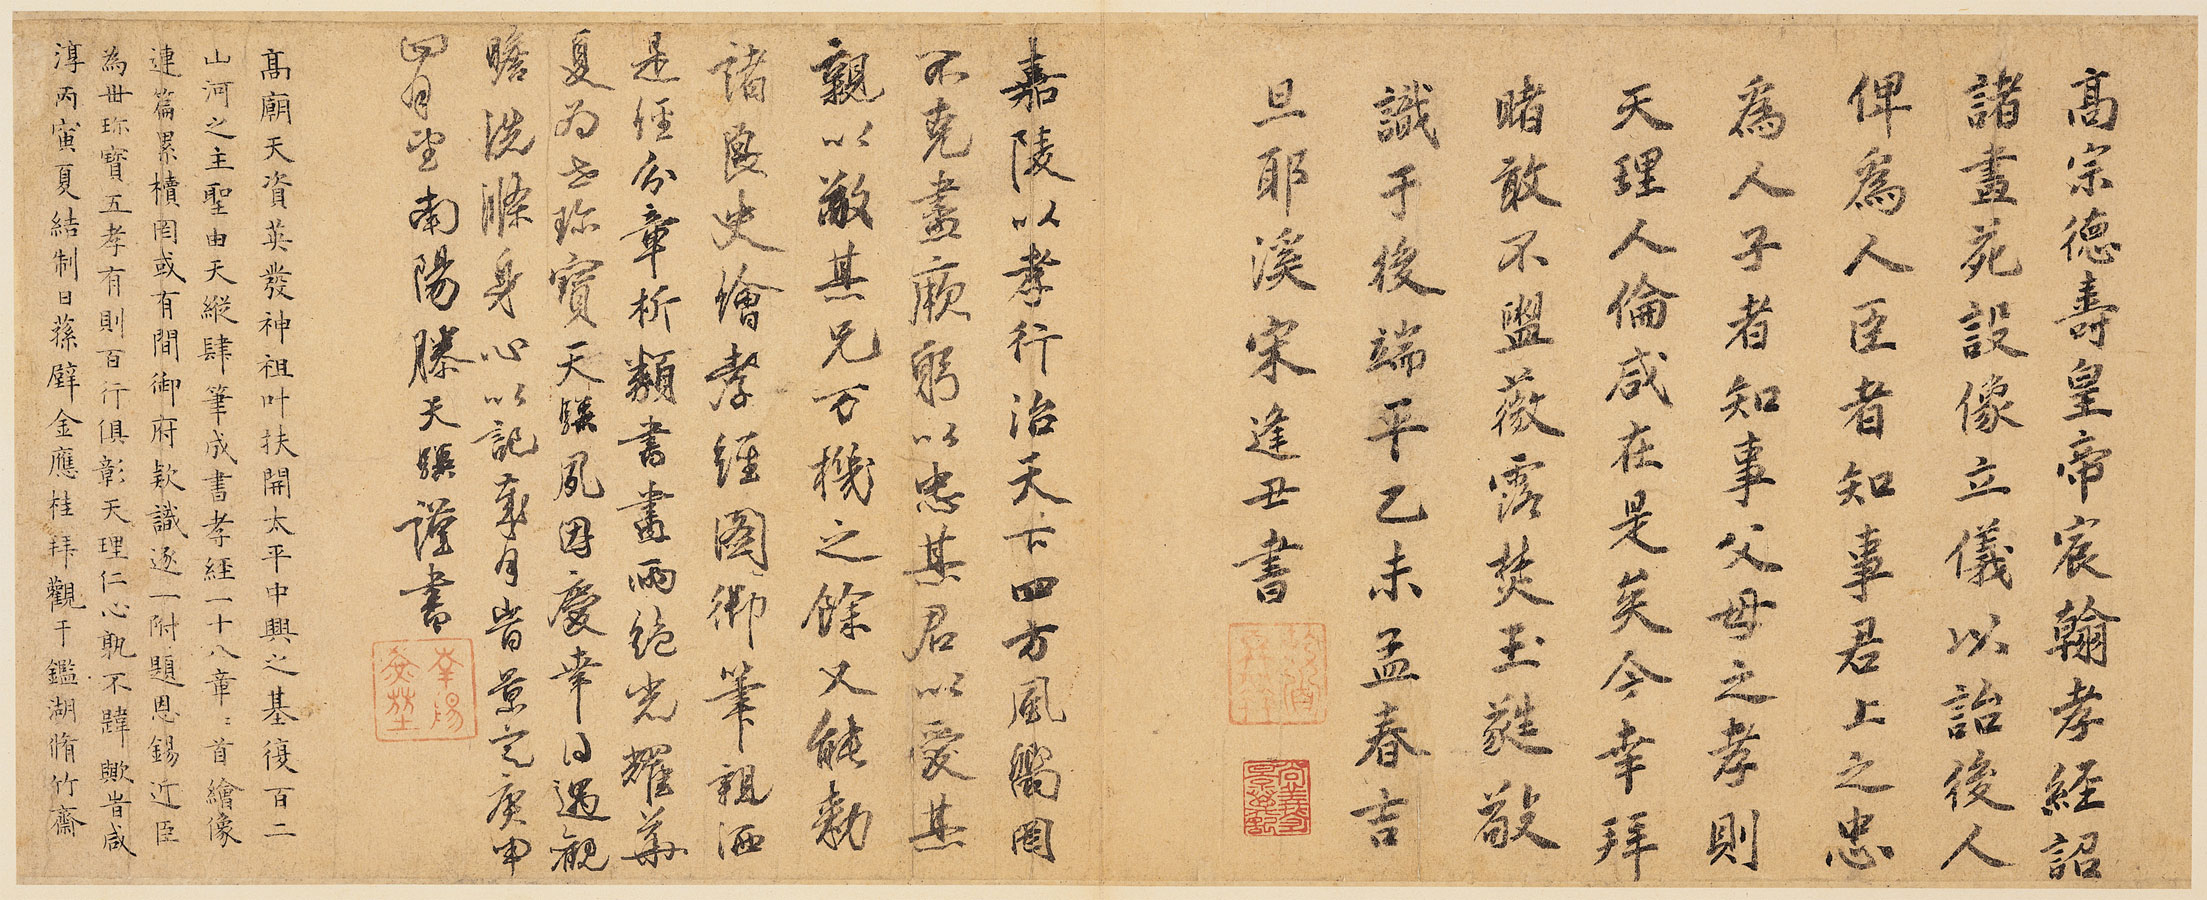 高宗德壽皇帝宸翰孝經詔
諸畫苑設像立儀以詒後人
俾為人臣者知事君上之忠
為人子者知事父母之孝則
天理人倫咸在是矣今幸拜
睹敢不盥薇露焚玉蕤敬
識于後端平乙未孟春吉
旦耶溪宋逢丑書
嘉陵以孝行治天下四方風靡罔
不克盡厥躬以忠其君以愛其
親以敬其兄万機之餘又能勅
諸良史繪孝經圖御筆親洒
是經分章析類書畫兩絕光耀華
夏為世珍寶天驥夙因慶幸得遇觀
瞻洗滌身心以記歲月皆景定庚申
四月望南陽滕天驥謹書
高廟天資英發神祖叶扶開太平中興之基復百二
山河之主聖由天縱肆筆成書孝經一十八章章首繪像
連篇累櫝罔或有間御府欵識逐一附題恩錫近臣
為世珎寶五孝有則百行俱彰天理仁心孰不韙歟旹咸
淳丙寅夏結制日蓀壁金應桂拜觀于鑑湖脩竹齋